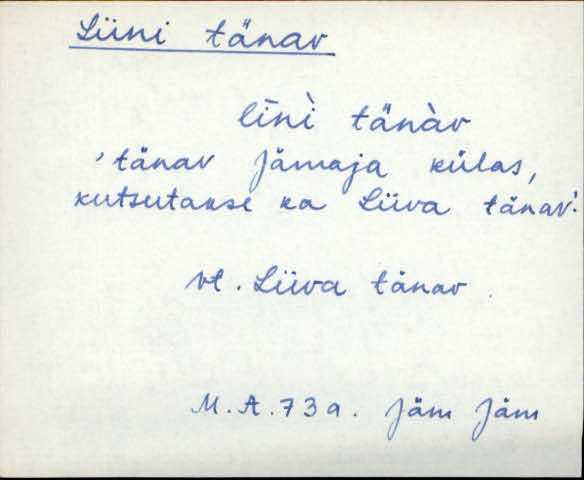 Liini tänav
līnì tänàv
'tänav Jämaja külas,
kutsutakse ka Liiva tänav.'
vt. Liiva tänav.
M.A. 73 a. Jäm Jäm